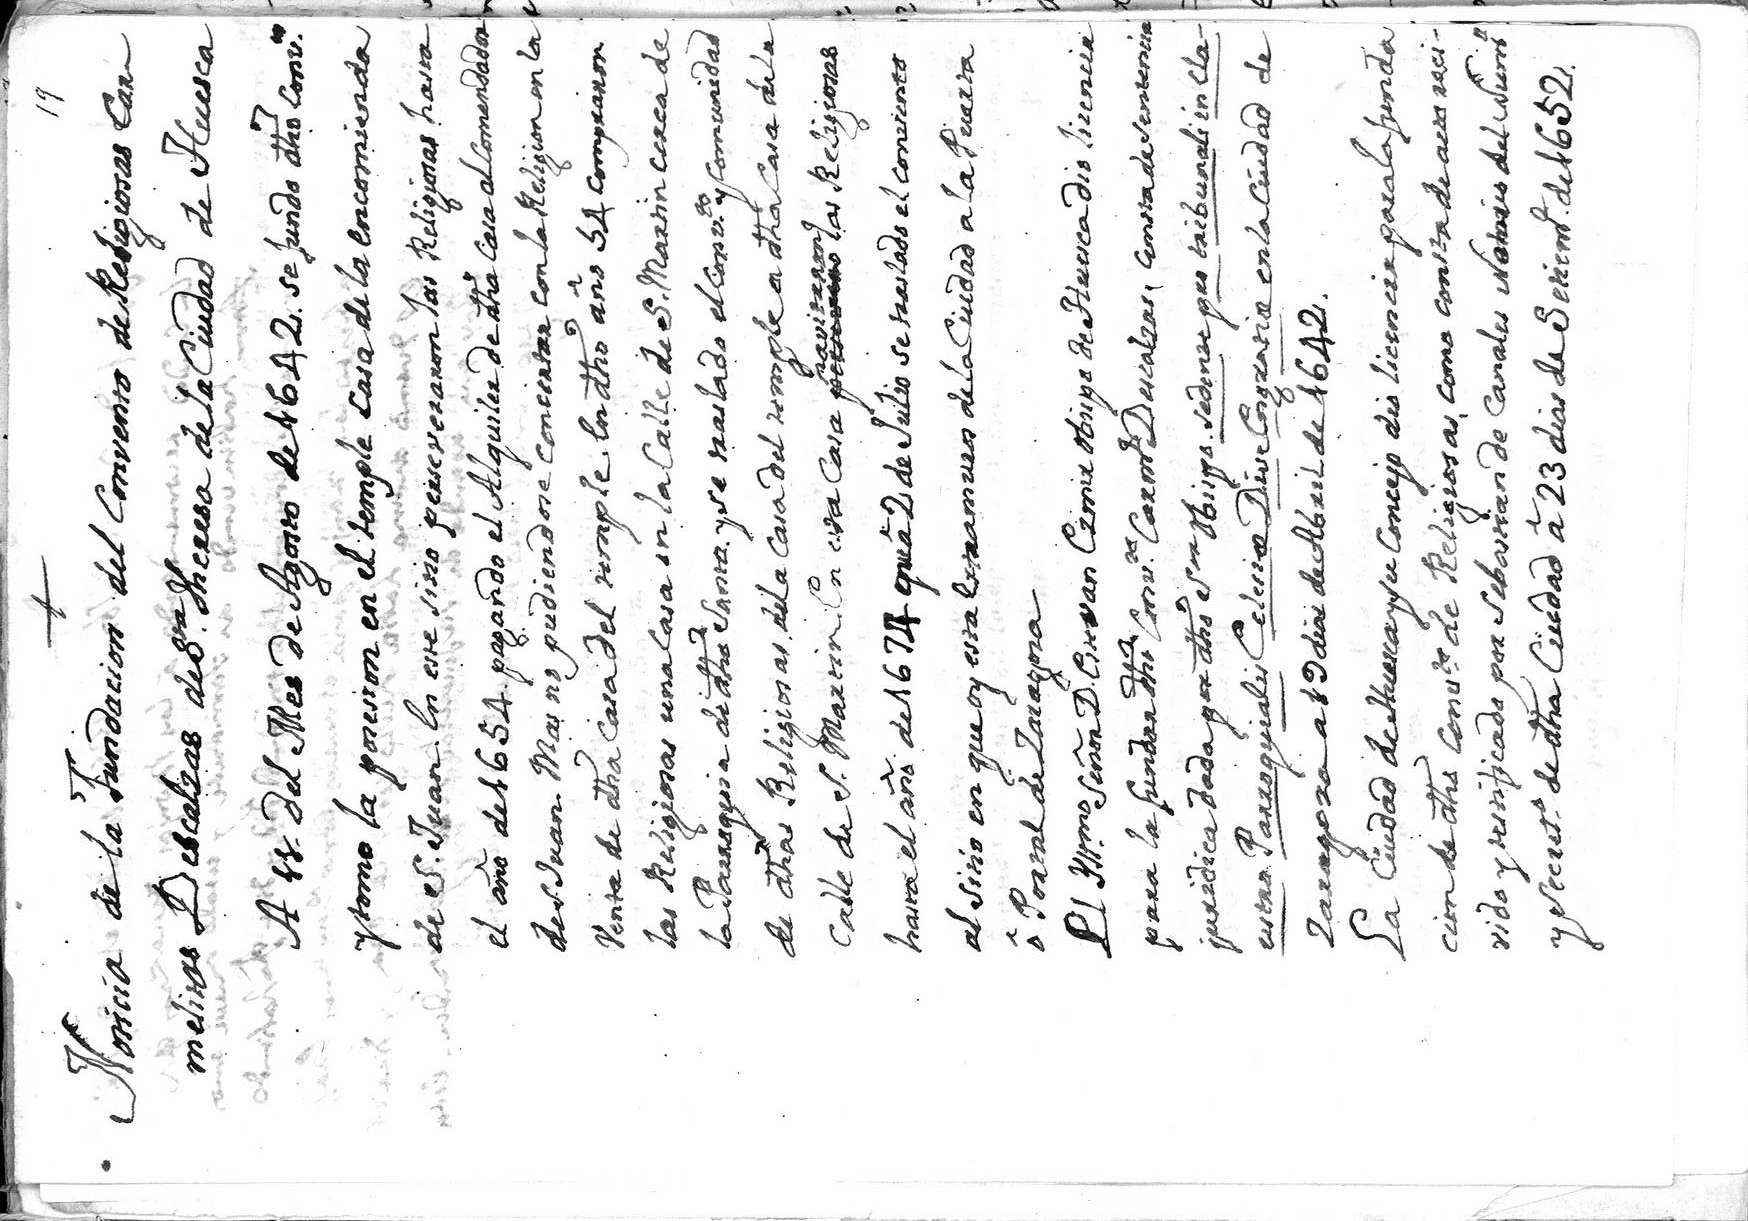 19
+
Noticia de la Fundacion del Convento de Religiosas Car-
melitas Descalzas de Sta. Theresa de la Ciudad de Huesca
A 18. del Mes de Agosto de 1642. se fundo dho Convto.
y tomo la posesion en el temple casa de la encomienda
de S. Juan. En este sitio perseveraron las Religiosas hasta
el año de 1654 pagando el Alquiler de dha Casa al Comendador
de S. Juan. Mas no pudiendose concertar con la Religion en la
Venta de dha Casa del temple, En dho año 54 compraron
las Religiosas una Casa en la Calle de S. Martin cerca de
la Parroquia de dho Santo. y se traslado el Convto. y Comunidad
de dhas Religiosas, de la Casa del temple a dha Casa de la
Calle de S. Martin. En esta Casa havitaron las Religiosas
hasta el año de 1674 que a 2 de Julio se traslado el convento
al sitio en que oy esta Extramuros de la Ciudad a la Puerta
o Portal de Zaragoza
El Illmo Señor D. Estevan Esmir Obispo de Huesca dio licencia
para la fundar dho Convto. Carmtas Descalzas, consta de sentencia
juridica dada por dho Sor Obispo. sedente pro tribunali in cla-
ustro Parroquialis Eclesia Dive Congracie en la Ciudad de
Zaragoza a 19 dias de Abril de 1642.
La Ciudad de Huesca y su Concejo dio licencia para la funda
cion de dho Convto de Religiosas, como consta de acto reci-
vido y testificado por Sebastian de Canales Notario del Numo
y Secreto. de dha Ciudad a 23 dias de Setiemb. de 1652.